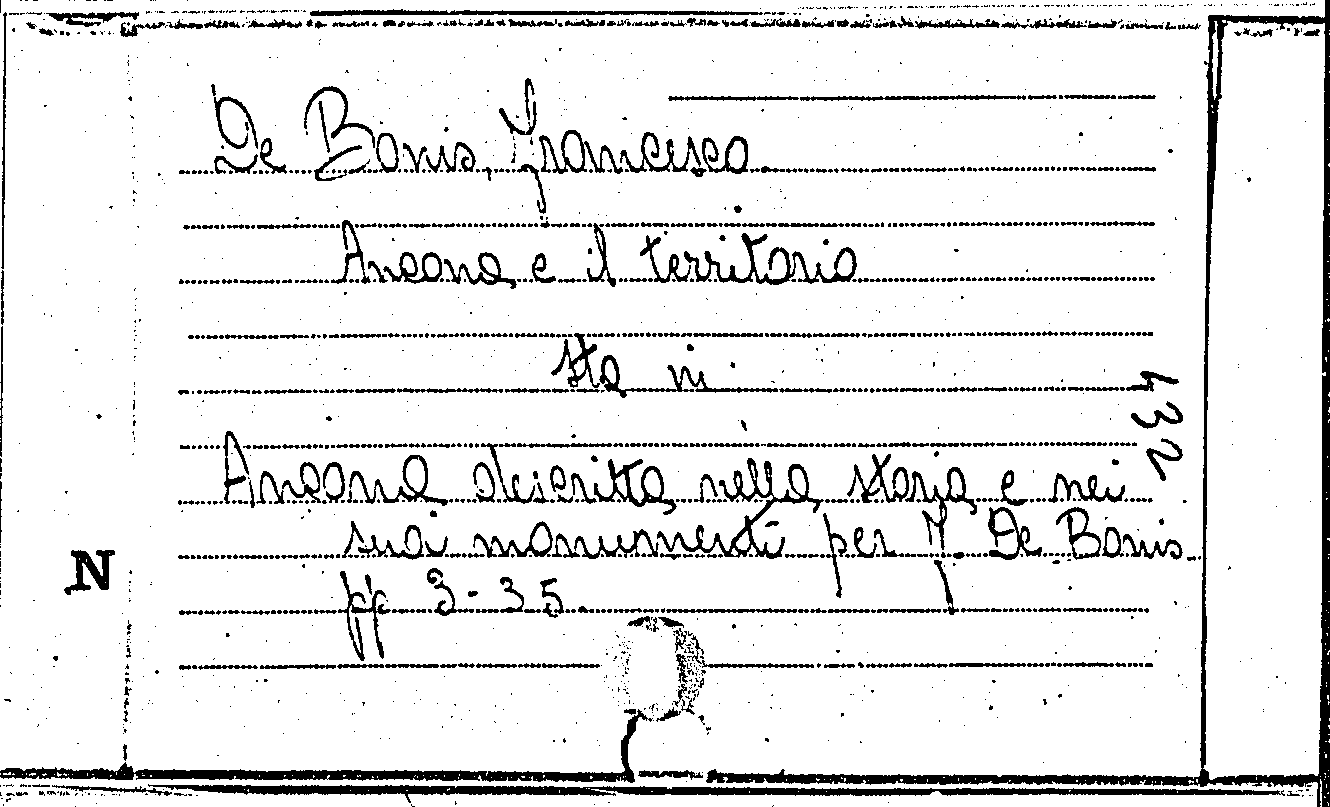 De Bonis, Francesco.
Ancona e il territorio
sta in:
Ancona descritta nella storia e nei
suoi monumenti per F. De Bonis
pp 3-35.
432
N